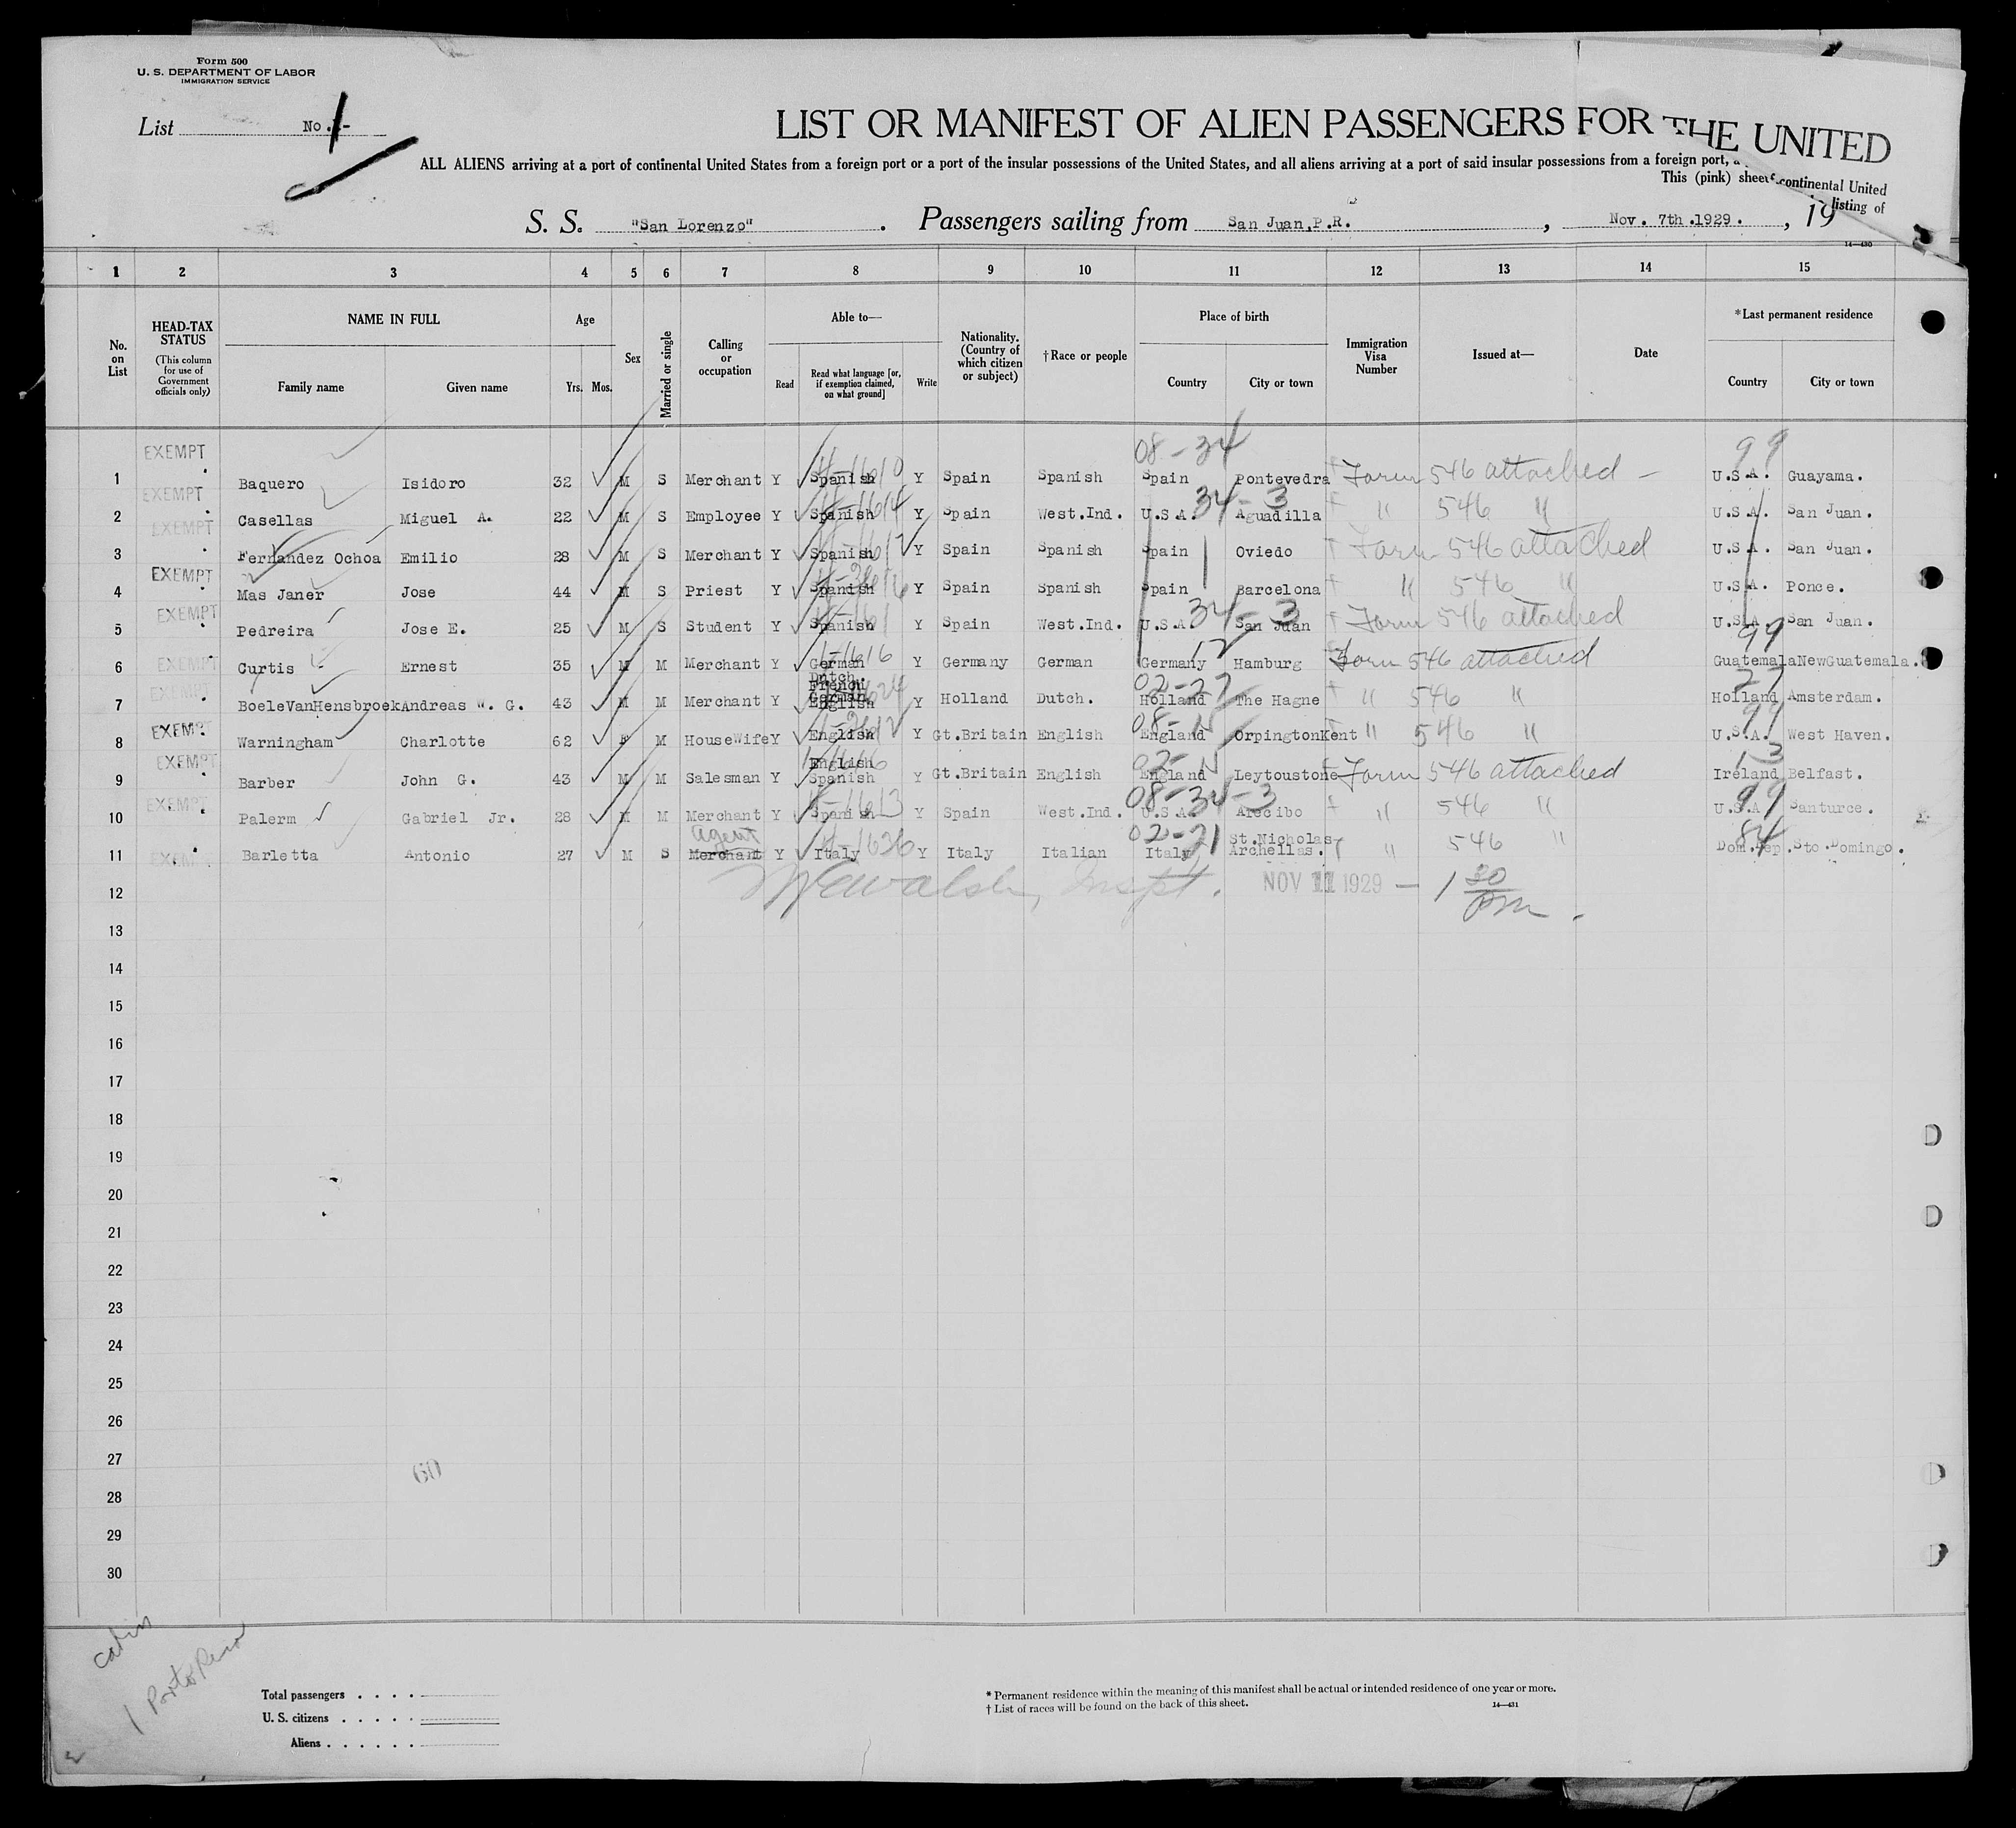 Form 500
U. S. DEPARTMENT OF LABOR
IMMIGRATION SERVICE
List No. 1
LIST OR MANIFEST OF ALIEN PASSENGERS FOR THE UNITED
ALL ALIENS arriving at a port of continental United States from a foreign port or a port of the insular possessions of the United States, and all aliens arriving at a port of said insular possessions from a foreign port, a continental United
This (pink) sheet listing of
S. S. "San Lorenzo" . Passengers sailing from San Juan,P.R. , Nov. 7th .1929. , 19
14—430
1 2 3 4 5 6 7 8 9 10 11 12 13 14 15
No. on List
HEAD-TAX STATUS (This column for use of Government officials only)
NAME IN FULL Family name Given name
Age Yrs. Mos.
Sex
Married or single
Calling or occupation
Able to— Read Read what language [or, if exemption claimed, on what ground] Write
Nationality. (Country of which citizen or subject)
†Race or people
Place of birth Country City or town
Immigration Visa Number
Issued at—
Date
*Last permanent residence Country City or town
08-34 99
1 EXEMPT Baquero Isidoro 32 M S Merchant Y Spanish Y Spain Spanish Spain Pontevedra Form 546 attached — U.S.A. Guayama.
34-3
2 EXEMPT Casellas Miguel A. 22 M S Employee Y Spanish Y Spain West.Ind. U.S.A. Aguadilla " 546 " U.S.A. San Juan.
3 EXEMPT Fernandez Ochoa Emilio 28 M S Merchant Y Spanish Y Spain Spanish Spain Oviedo Form 546 attached U.S.A. San Juan.
4 EXEMPT Mas Janer Jose 44 M S Priest Y Spanish Y Spain Spanish Spain Barcelona " 546 " U.S.A. Ponce.
34-3
5 EXEMPT Pedreira Jose E. 25 M S Student Y Spanish Y Spain West.Ind. U.S.A. San Juan Form 546 attached U.S.A. San Juan.
12 99
6 EXEMPT Curtis Ernest 35 M M Merchant Y German Y Germany German Germany Hamburg Form 546 attached Guatemala NewGuatemala.
02-27 27
7 EXEMPT BoeleVanHensbroek Andreas W. G. 43 M M Merchant Y Dutch. French German English Y Holland Dutch. Holland The Hagne " 546 " Holland Amsterdam.
99
8 EXEMPT Warningham Charlotte 62 F M HouseWife Y English Y Gt.Britain English England OrpingtonKent " 546 " U.S.A. West Haven.
9 EXEMPT Barber John G. 43 M M Salesman Y English Spanish Y Gt.Britain English England Leytoustone Form 546 attached Ireland Belfast.
08-34-3 99
10 EXEMPT Palerm Gabriel Jr. 28 M M Merchant Y Spanish Y Spain West.Ind. U.S.A. Arecibo " 546 " U.S.A. Santurce.
agent 02-21 84
11 EXEMPT Barletta Antonio 27 M S Merchant Y Italy Y Italy Italian Italy St.Nicholas Archellas. " 546 " Dom.Rep. Sto.Domingo.
12 Walsh, Inspt. NOV 11 1929 — 1 30 pm.
13
14
15
16
17
18
19
20
21
22
23
24
25
26
27
60
28
29
30
cabin
1 Porto Rican
Total passengers . . . .
U. S. citizens . . . . .
Aliens . . . . . .
* Permanent residence within the meaning of this manifest shall be actual or intended residence of one year or more.
† List of races will be found on the back of this sheet.
14—431